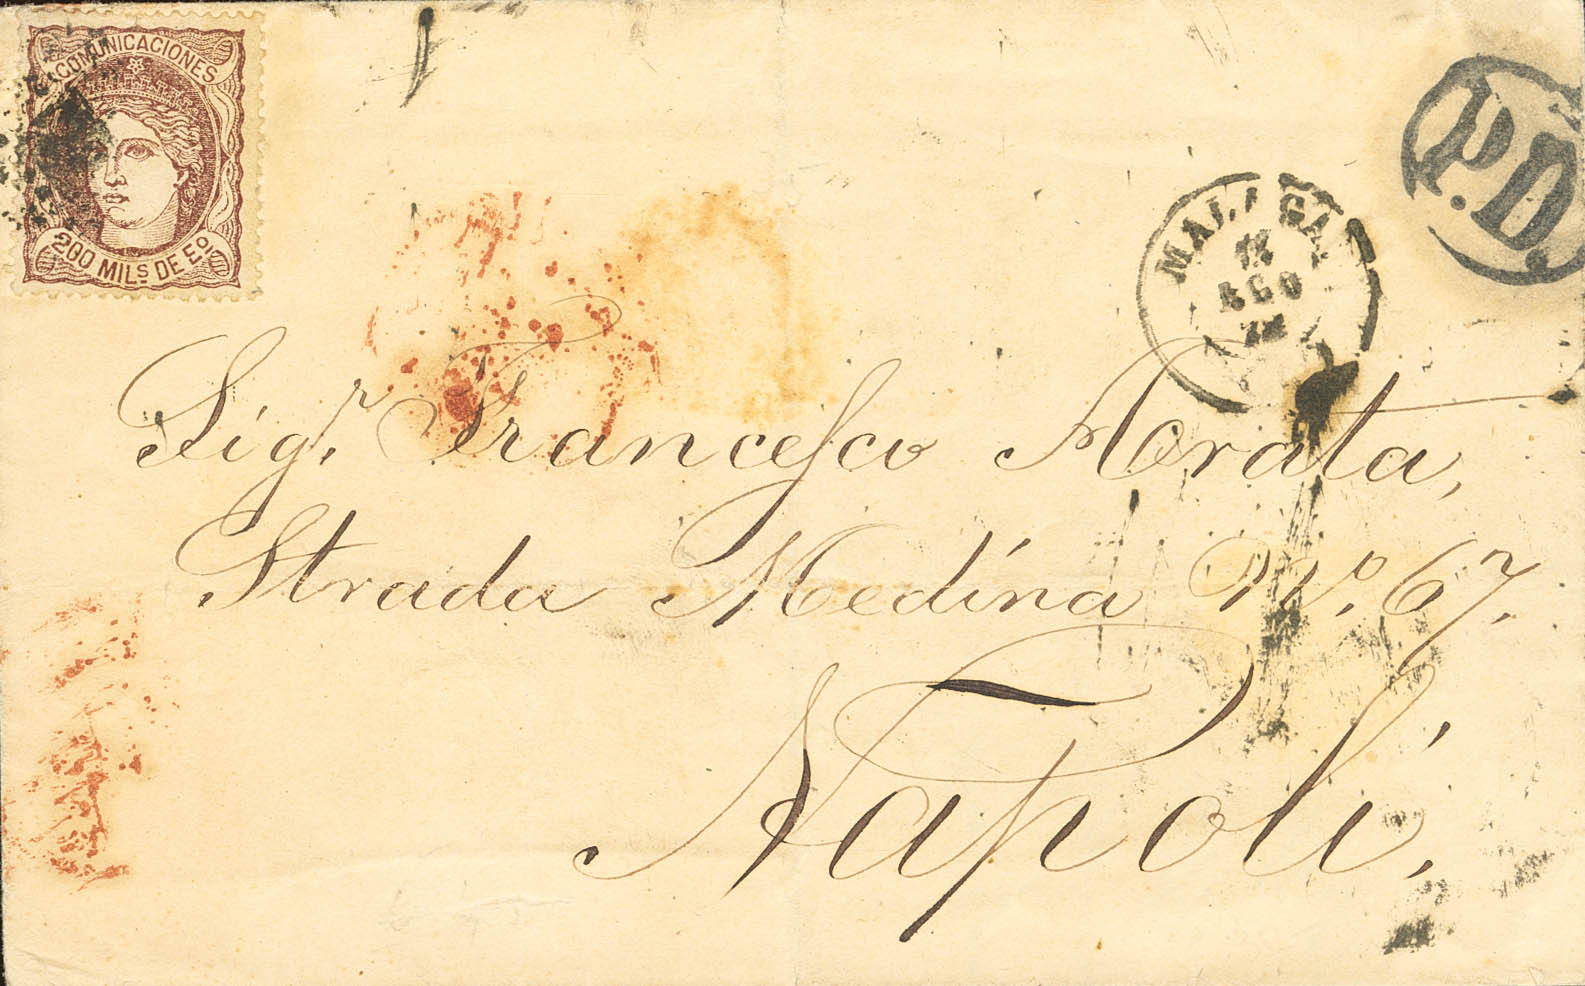 COMUNICACIONES
200 MILS DE Eo
P.D.
MALAGA
AGO
Sigr. Francesco Morata,
Strada Medína No. 67.
Napoli.